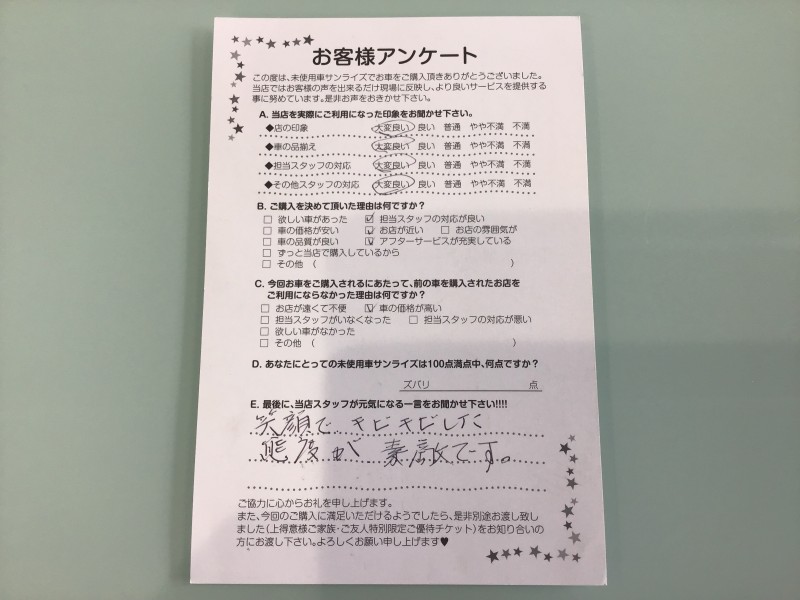 お客様アンケート
この度は、未使用車サンライズでお車をご購入頂きありがとうございました。
当店ではお客様の声を出来るだけ現場に反映し、より良いサービスを提供する
事に努めています。是非お声をおきかせ下さい。
A. 当店を実際にご利用になった印象をお聞かせ下さい。
◆店の印象 大変良い 良い 普通 やや不満 不満
◆車の品揃え 大変良い 良い 普通 やや不満 不満
◆担当スタッフの対応 大変良い 良い 普通 やや不満 不満
◆その他スタッフの対応 大変良い 良い 普通 やや不満 不満
B. ご購入を決めて頂いた理由は何ですか?
□ 欲しい車があった ☑ 担当スタッフの対応が良い
□ 車の価格が安い ☑ お店が近い □ お店の雰囲気が
□ 車の品質が良い ☑ アフターサービスが充実している
□ ずっと当店で購入しているから
□ その他 ( )
C. 今回お車をご購入されるにあたって、前の車を購入されたお店を
ご利用にならなかった理由は何ですか?
□ お店が遠くて不便 ☑ 車の価格が高い
□ 担当スタッフがいなくなった □ 担当スタッフの対応が悪い
□ 欲しい車がなかった
□ その他 ( )
D. あなたにとっての未使用車サンライズは100点満点中、何点ですか?
ズバリ 点
E. 最後に、当店スタッフが元気になる一言をお聞かせ下さい!!!!
笑顔で キビキビした
態度が 素敵です。
ご協力に心からお礼を申し上げます。
また、今回のご購入に満足いただけるようでしたら、是非別途お渡し致し
ました(上得意様ご家族・ご友人特別限定ご優待チケット)をお知り合いの
方にお渡し下さい。よろしくお願い申し上げます♥